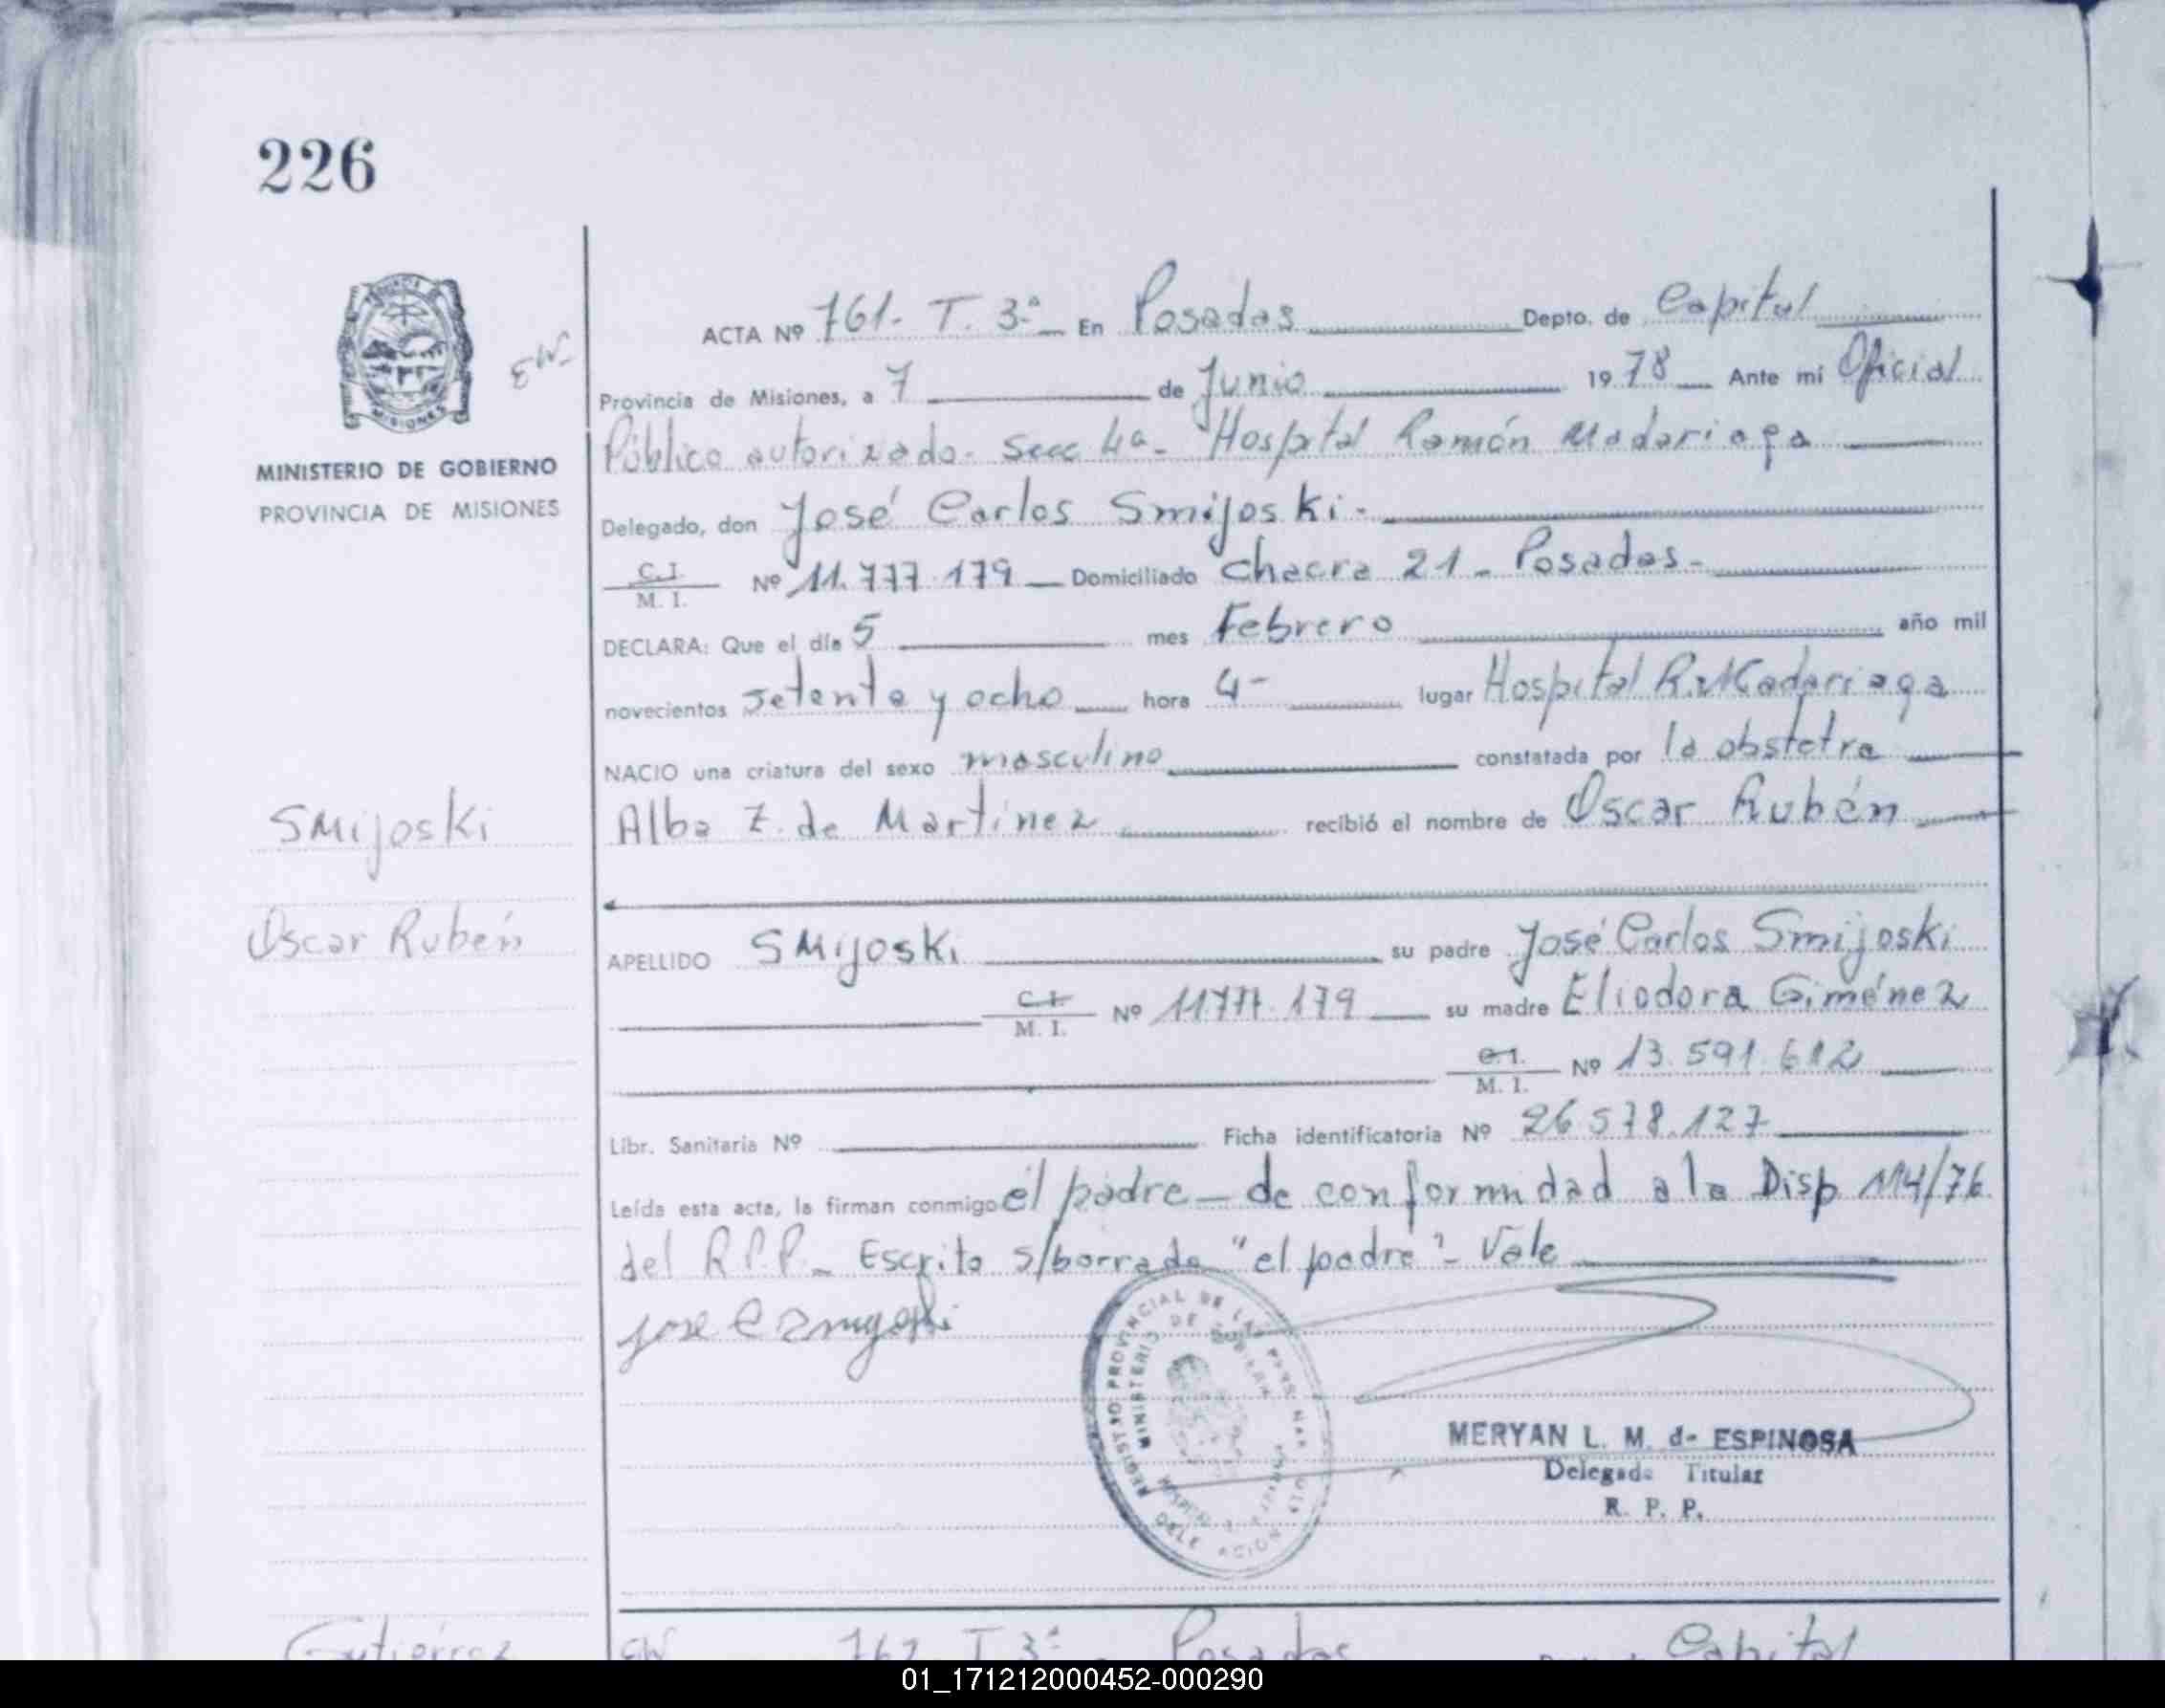 226
ACTA Nº 761. T. 3ª En Posadas Depto. de Capital
Provincia de Misiones, a 7 de Junio 1978 Ante mí Oficial
Público autorizado. Secc 4a- Hospital Ramón Madariaga
MINISTERIO DE GOBIERNO
PROVINCIA DE MISIONES
Delegado, don José Carlos Smijoski.
C.I. M. I. Nº 11.777.179 Domiciliado Chacra 21 - Posadas-
DECLARA: Que el día 5 mes Febrero año mil
novecientos setenta y ocho hora 4- lugar Hospital R. Madariaga
NACIO una criatura del sexo masculino constatada por la obstetra
Alba Z. de Martinez recibió el nombre de Oscar Rubén
Smijoski
Oscar Rubén
APELLIDO SMIJOSKI su padre José Carlos Smijoski
C.I. M. I. Nº 11777.179 su madre Eliodora Giménez
C.I. M. I. Nº 13.591.612
Libr. Sanitaria Nº Ficha identificatoria Nº 26578.127
Leída esta acta, la firman conmigo el padre - de conformidad a la Disp 114/76
del R.P.P. - Escrito s/borrado "el padre" - Vale
Jose C Smijoski
REGISTRO PROVINCIAL DE LAS PERSONAS
MINISTERIO DE GOBIERNO
DELEGACION
MERYAN L. M. de ESPINOSA
Delegada Titular
R. P. P.
Gutiérrez
EW 762 T 3ª Posadas Capital
01_171212000452-000290